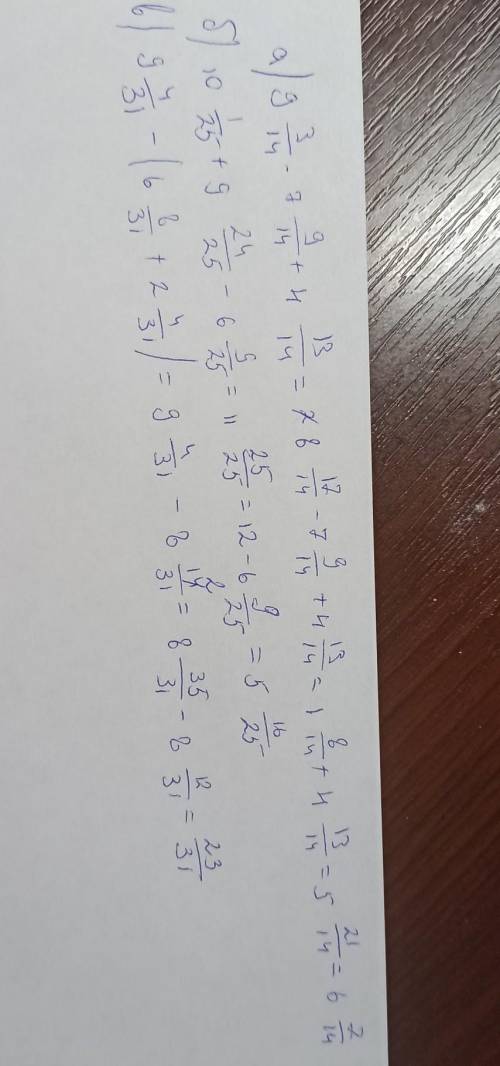 а) 9 3/14 - 7 9/14 + 4 13/14 = 8 17/14 - 7 9/14 + 4 13/14 = 1 8/14 + 4 13/14 = 5 21/14 = 6 7/14
б) 10 1/25 + 9 24/25 - 6 9/25 = 11 25/25 = 12 - 6 9/25 = 5 16/25
в) 9 4/31 - (6 8/31 + 2 4/31) = 9 4/31 - 8 12/31 = 8 35/31 - 8 12/31 = 23/31